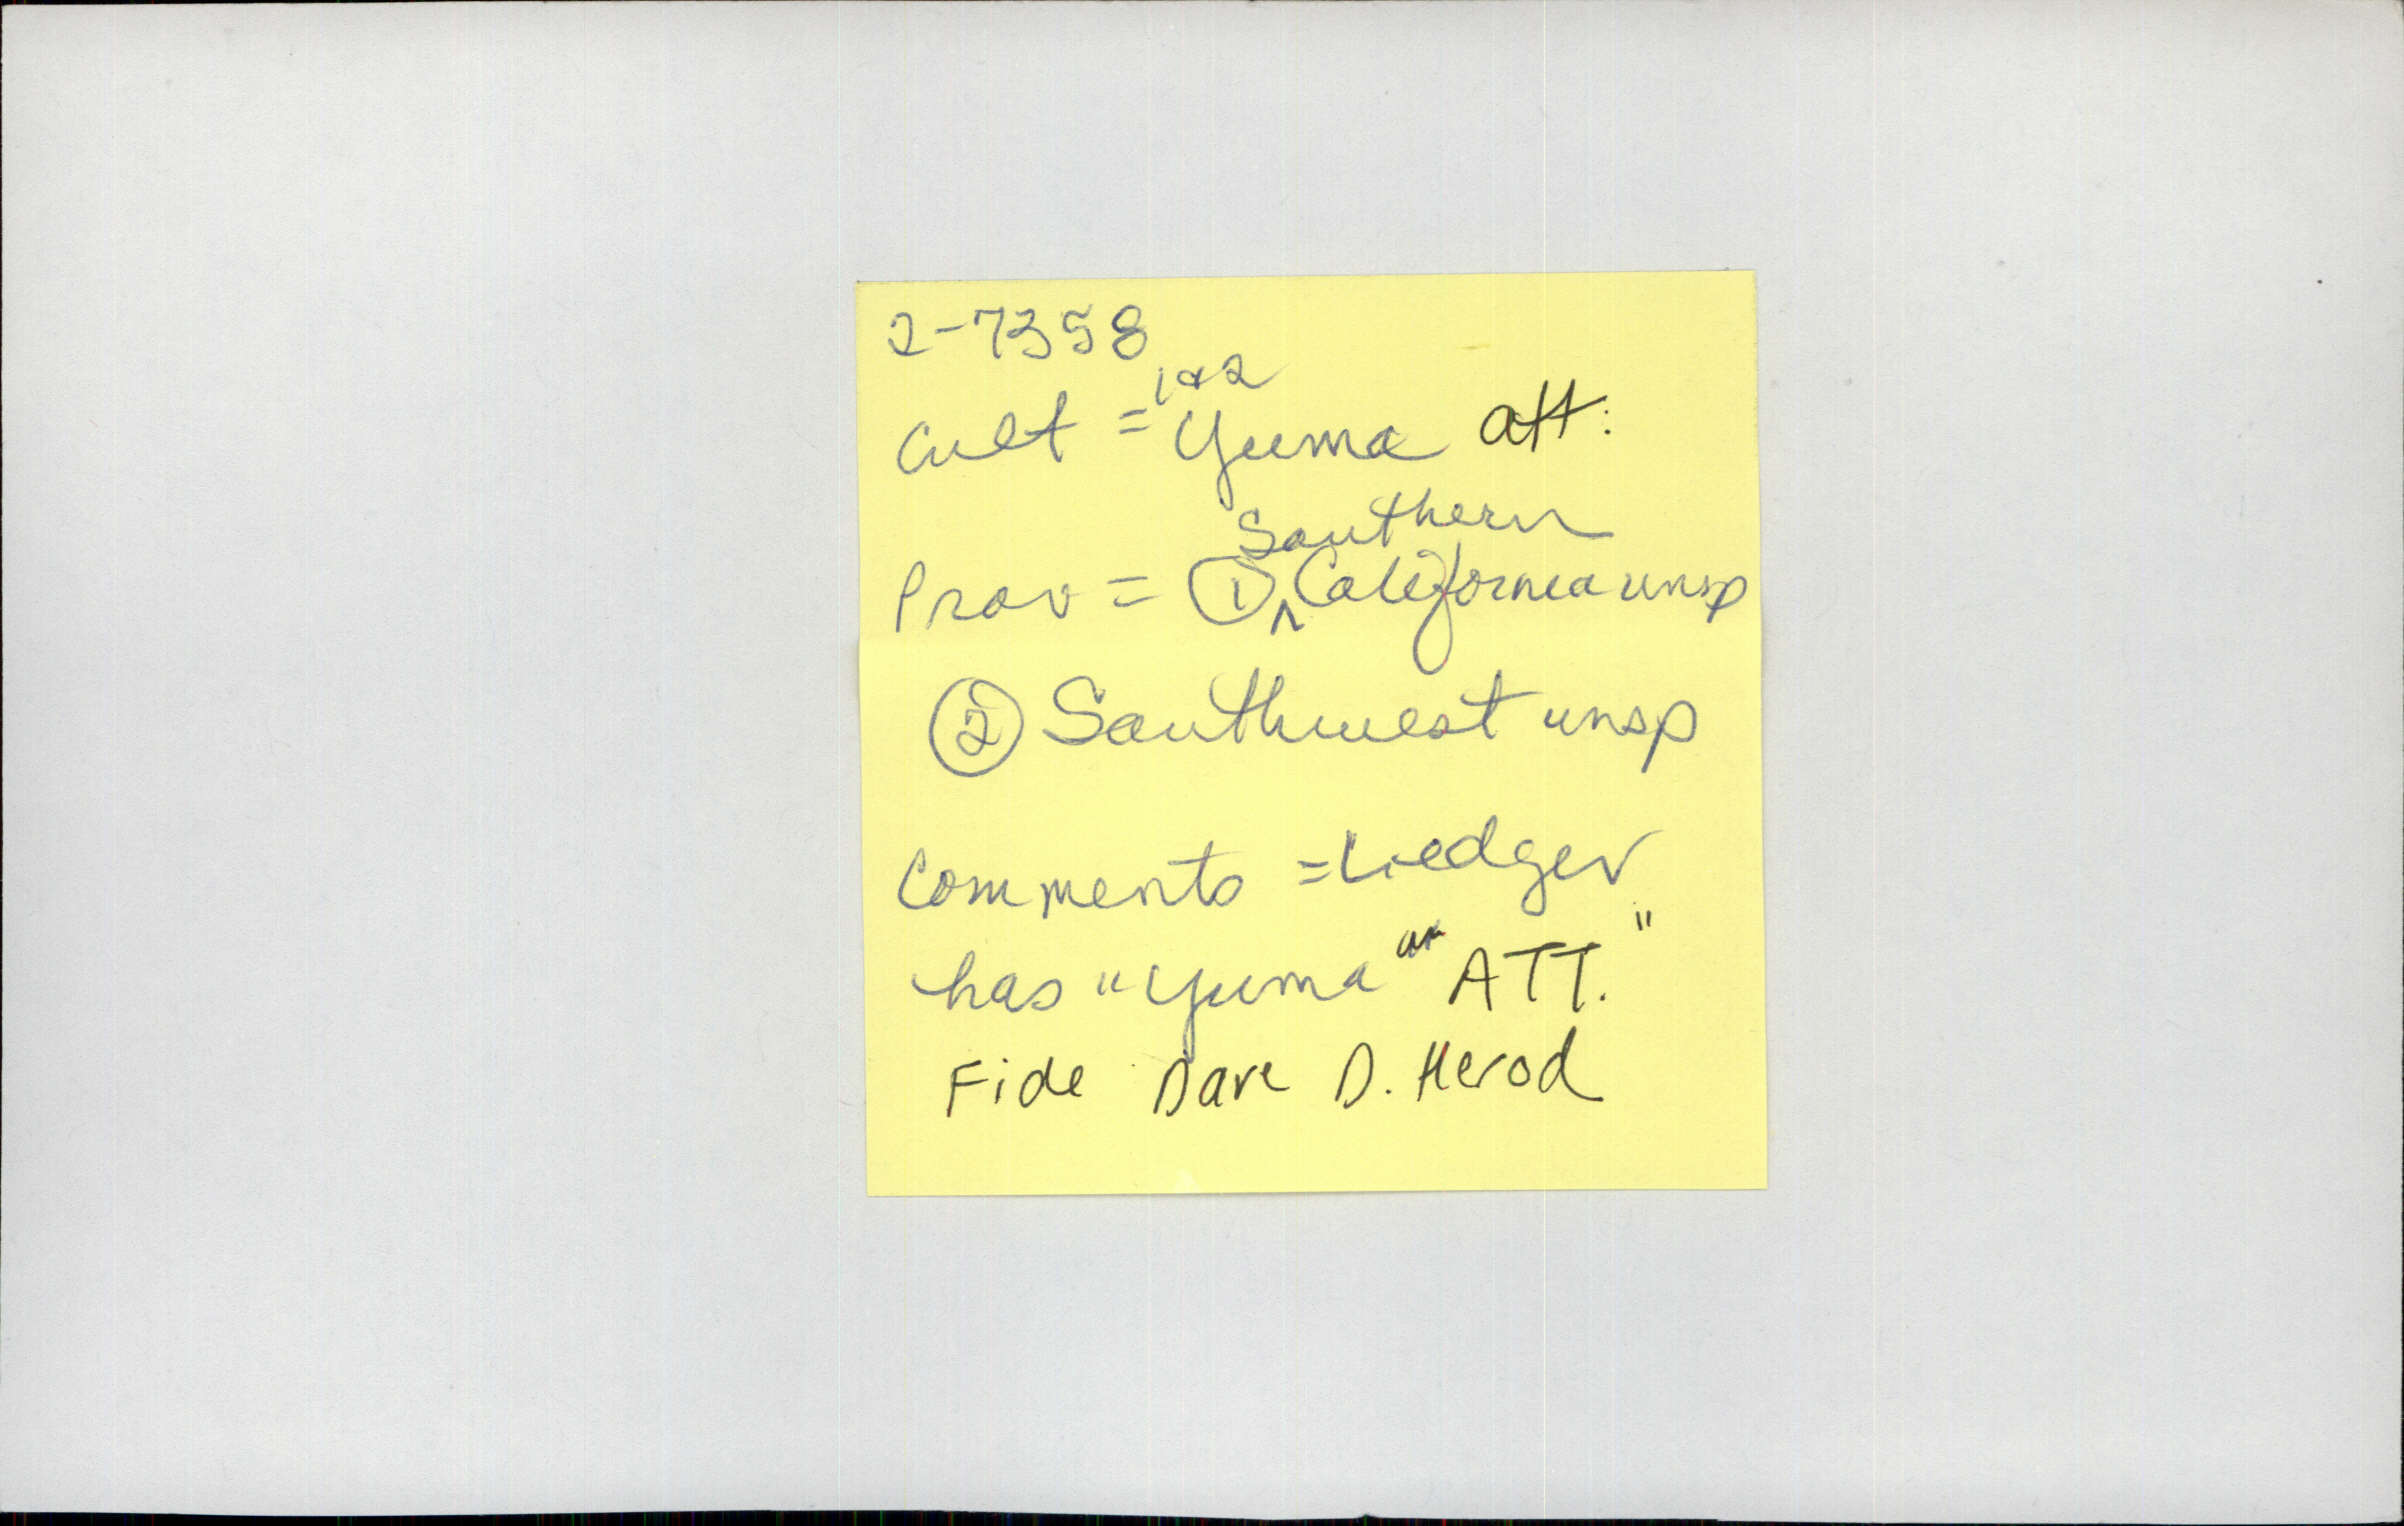 2-7358
1&2
Cult = Yuma att:
Southern
Prov = ① ^ California unsp
② Southwest unsp
Comments = Ledger
has "Yuma" ATT."
Fide Dave D. Herod